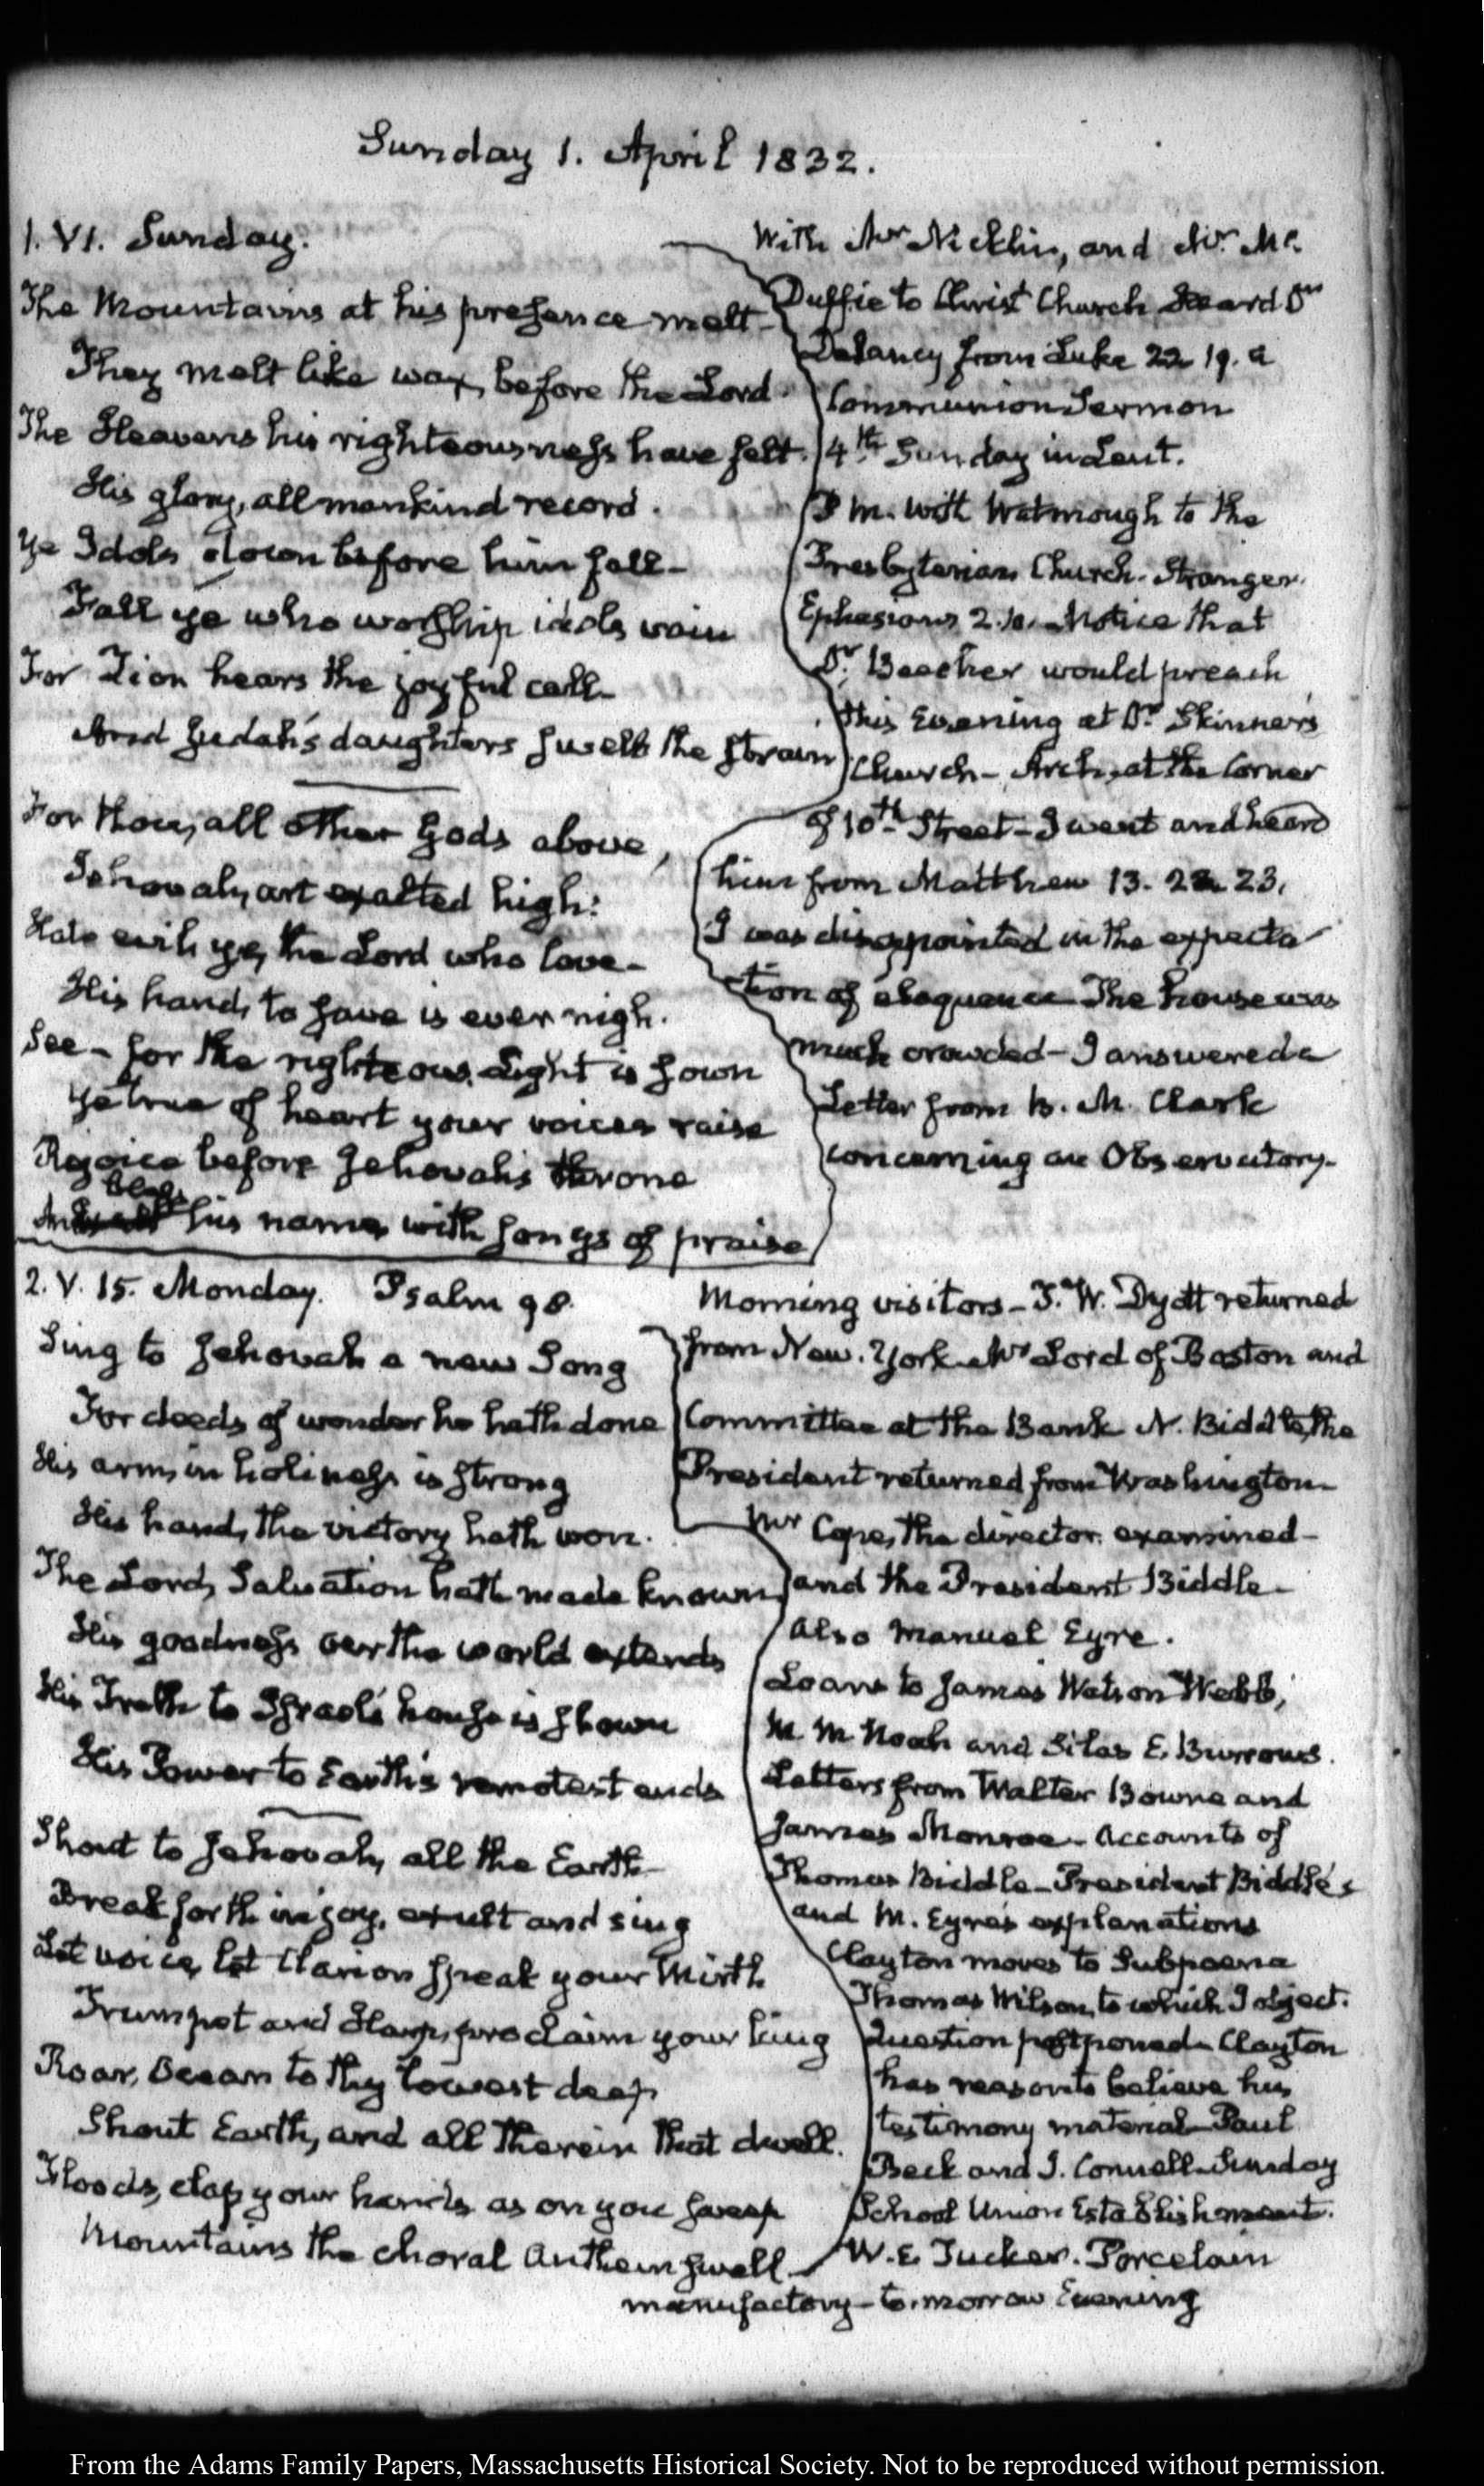 Sunday 1. April 1832.
1. VI. Sunday.
The Mountains at his presence melt-
They melt like wax, before the Lord.
The Heavens his righteousness have felt.
His glory, all mankind record.
Ye Idols down before him fall-
Fall ye who worship idols vain
For Zion hears the joyful call-
And Judah's daughters swell the strain
For thou, all other Gods above,
Jehovah, art exalted high:
Hate evil, ye, the Lord who love-
His hand, to save is ever nigh.
See- for the righteous, Light is sown
Ye true of heart your voices raise
Rejoice before Jehovah's throne
bless
And his name with songs of praise
With Mr Nicklin, and Mr Mc.
Duffie to Christ Church Heard Dr
Delancy from Luke 22 19. a
Communion Sermon
4th Sunday in Lent.
P M. with Watmough to the
Presbyterian Church. Stranger.
Ephesians 2.10. Notice that
Dr. Beecher would preach
this Evening at Dr Skinner's
Church- Arch, at the Corner
of 10th Street- I went and heard
him from Matthew 13. 22. 23.
I was disappointed in the expecta
tion of eloquence The house was
much crowded- I answered a
Letter from B. M. Clark
concerning an Observatory-
2. V. 15. Monday. Psalm 98.
Sing to Jehovah a new Song
For deeds of wonder he hath done
His arm, in holiness is strong
His hand, the victory hath won.
The Lord, Salvation hath made known
His goodness oer the world extends
His Truth to Israel's house is shown
His Power to Earth's remotest ends
Shout to Jehovah, all the Earth-
Break forth in joy, exult and sing
Let voice, let Clarion speak your Mirth
Trumpet and Harp, proclaim your king
Roar, Ocean to thy lowest deep
Shout Earth, and all therein that dwell.
Floods, clap your hands as on you sweep
Mountains the choral Anthem swell-
Morning visitors- T. W. Dyott returned
from New. York Mr Lord of Boston and
Committee at the Bank N. Biddle, the
President returned from Washington-
Mr Cope, the director. examined-
and the President Biddle-
also Manuel Eyre.
Loans to James Watson Webb,
M. M. Noah and Silas E. Burrows.
Letters from Walter Bowne and
James Monroe- Accounts of
Thomas Biddle- President Biddle's
and M. Eyre's explanations
Clayton moves to Subpoena
Thomas Wilson, to which I object.
Question postponed- Clayton
has reason to believe his
testimony material- Paul
Beck and J. Connell- Sunday
School Union Establishment.
W. E. Tucker. Porcelain
manufactory- to-morrow Evening
From the Adams Family Papers, Massachusetts Historical Society. Not to be reproduced without permission.